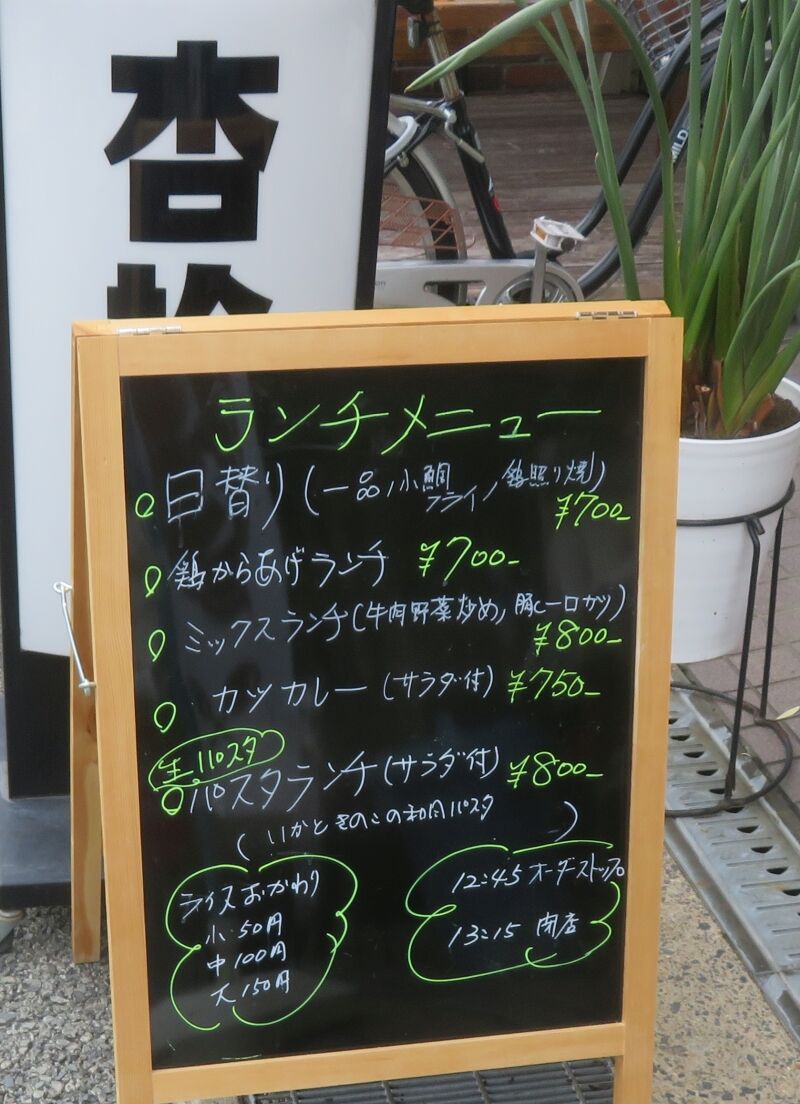 杏
ランチメニュー
日替り(一品,小鯛フライ,鶏照り焼)
¥700-
鶏からあげランチ ¥700-
ミックスランチ(牛肉野菜炒め,豚ヒレ一口カツ)
¥800-
カツカレー(サラダ付) ¥750-
生パスタ
パスタランチ(サラダ付) ¥800-
(いかときのこの和風パスタ)
ライスおかわり
小 50円
中 100円
大 150円
12:45 オーダーストップ
13:15 閉店
MILD